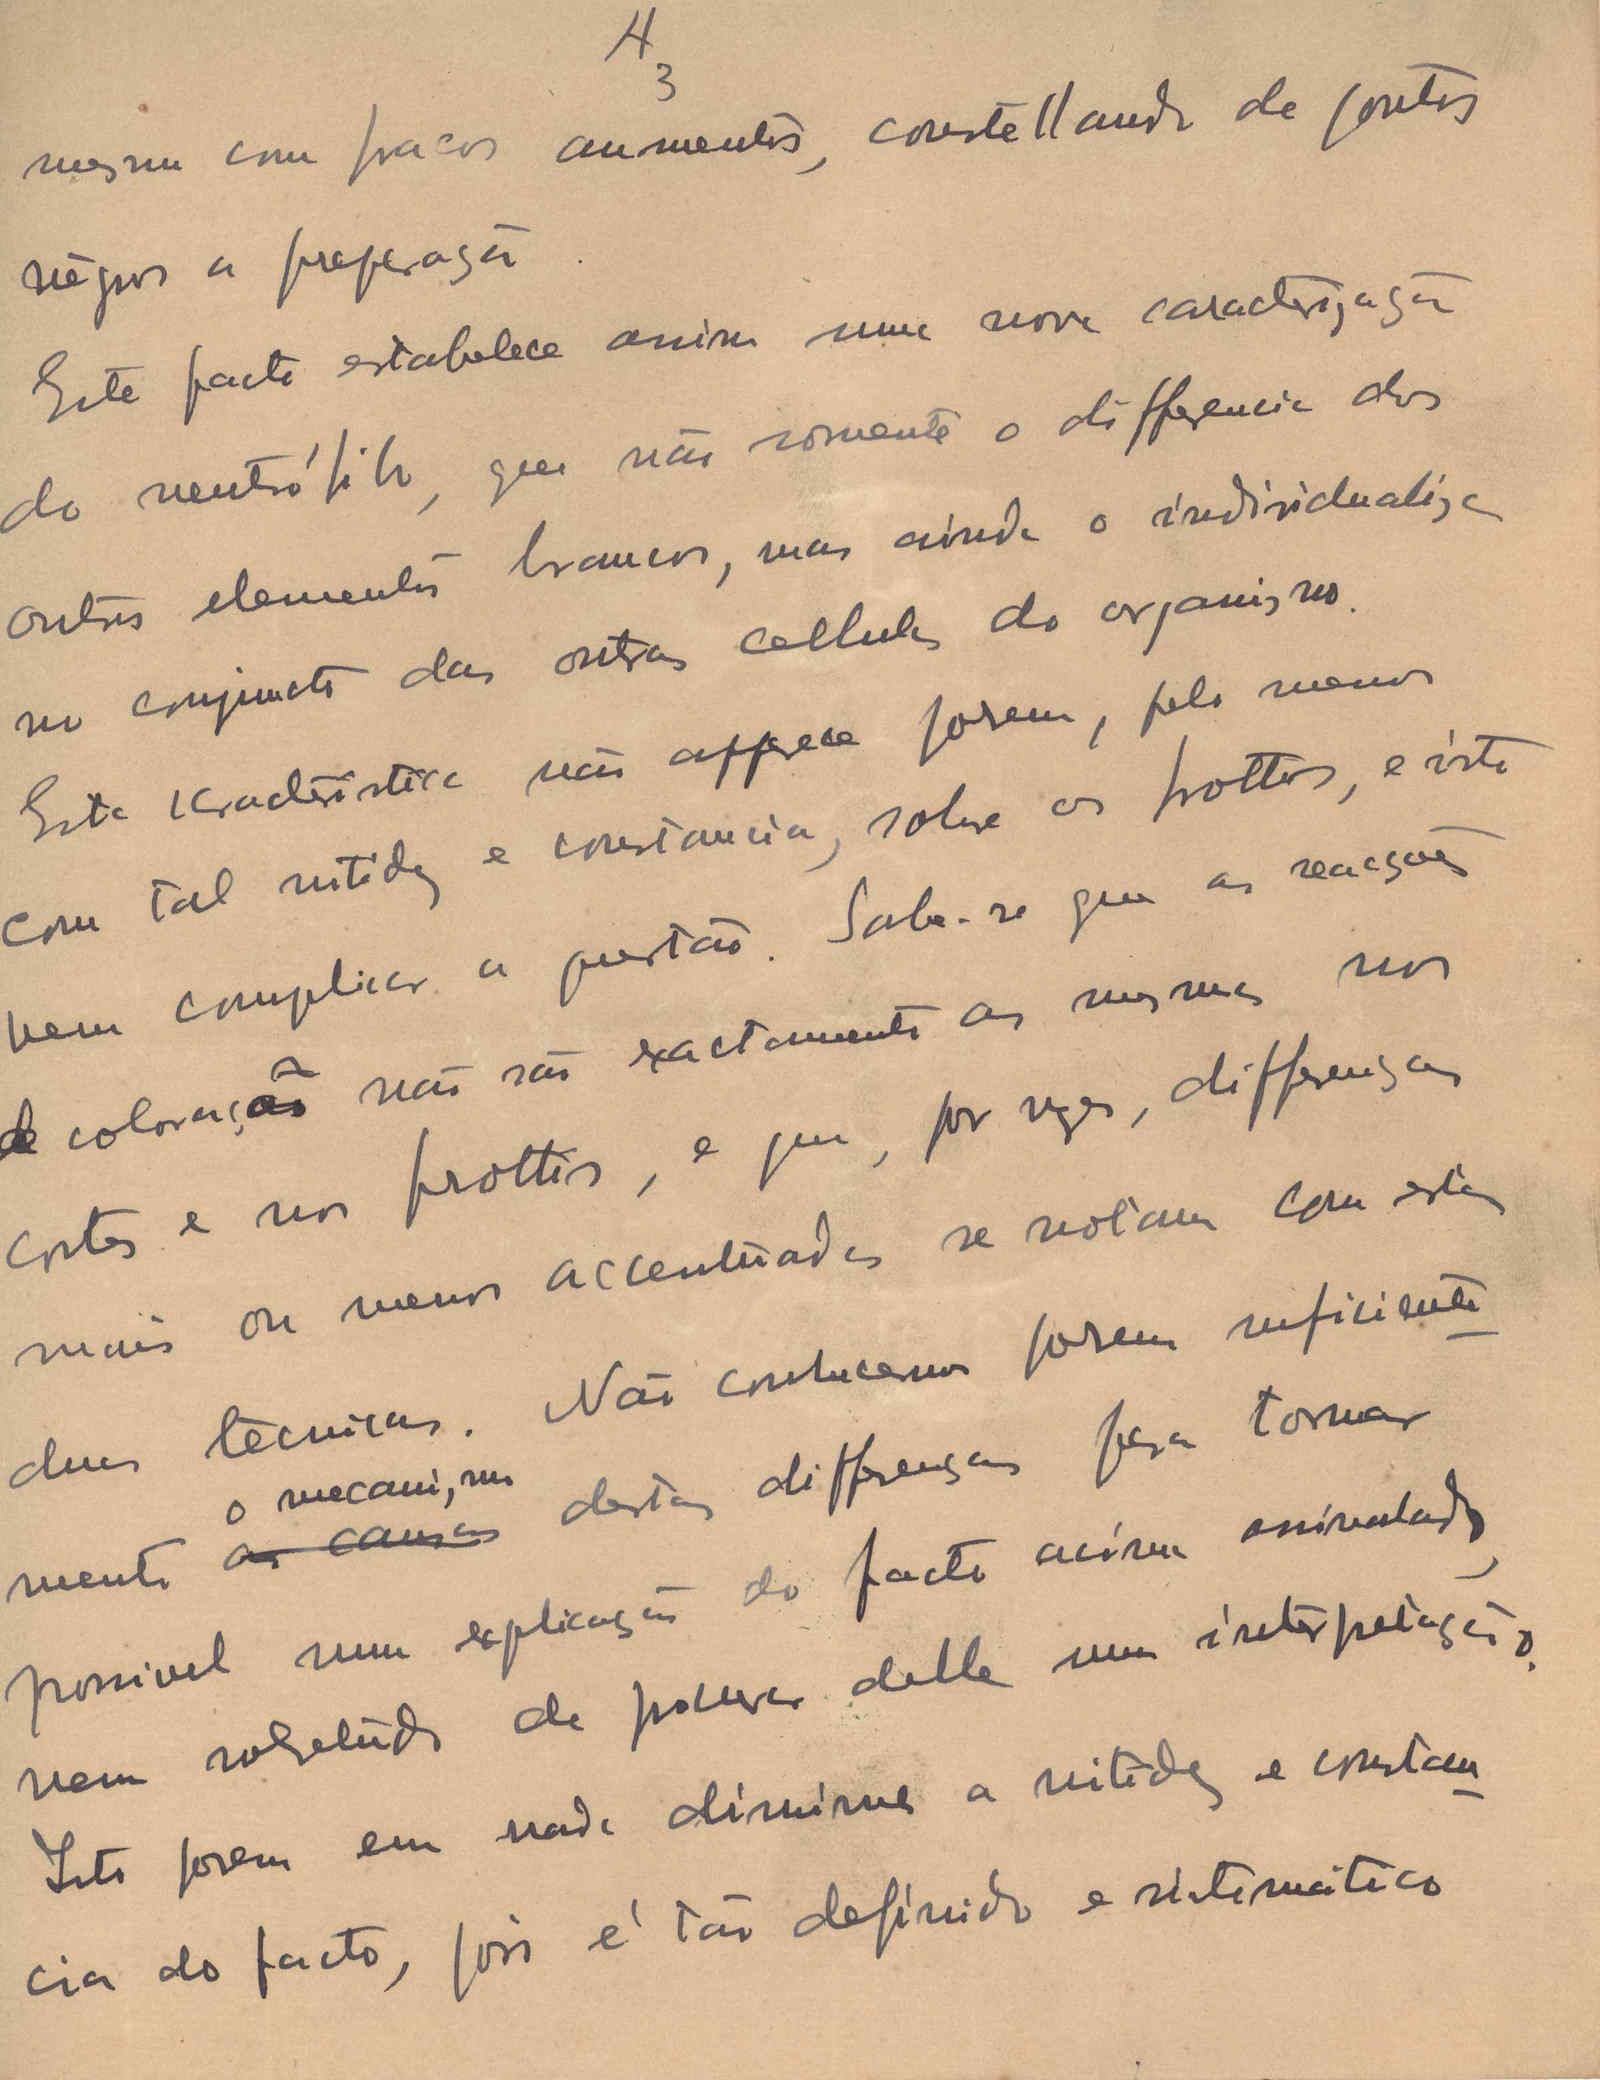 H
3
mesmo com fracos aumentos, constellando de pontos
negros a preparação.
Este facto estabelece assim uma nova caracterização
do neutrófilo, que não somente o differencia dos
outros elementos brancos, mas ainda o individualiza
no conjuncto das outras cellulas do organismo.
Esta característica não apparece porem, pelo menos
com tal nitidez e constancia, sobre os frottis, e isto
vem complicar a questão. Sabe-se que as reacções
de coloração não são exactamente as mesmas nos
cortes e nos frottis, e que, por vezes, differenças
mais ou menos accentuadas se notam com estas
duas técnicas. Não conhecemos porem suficiente
mente as causas o mecanismo destas differenças para tornar
possivel uma explicação do facto acima assinalado,
nem sobretudo de procurar delle uma interpretação.
Isto porem em nada diminue a nitidez e constan
cia do facto, pois é tão definido e sistemático